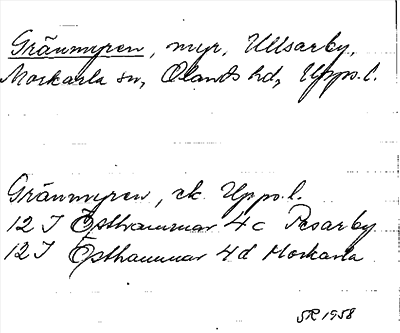 Gränmyren, myr, Ullsarby,
Morkarla sn, Olands hd, Upps. l.
Gränmyren, ek. Upps. l.
12 I Östhammar 4c Pesarby
12 I Östhammar 4d Morkarla
SR 1958